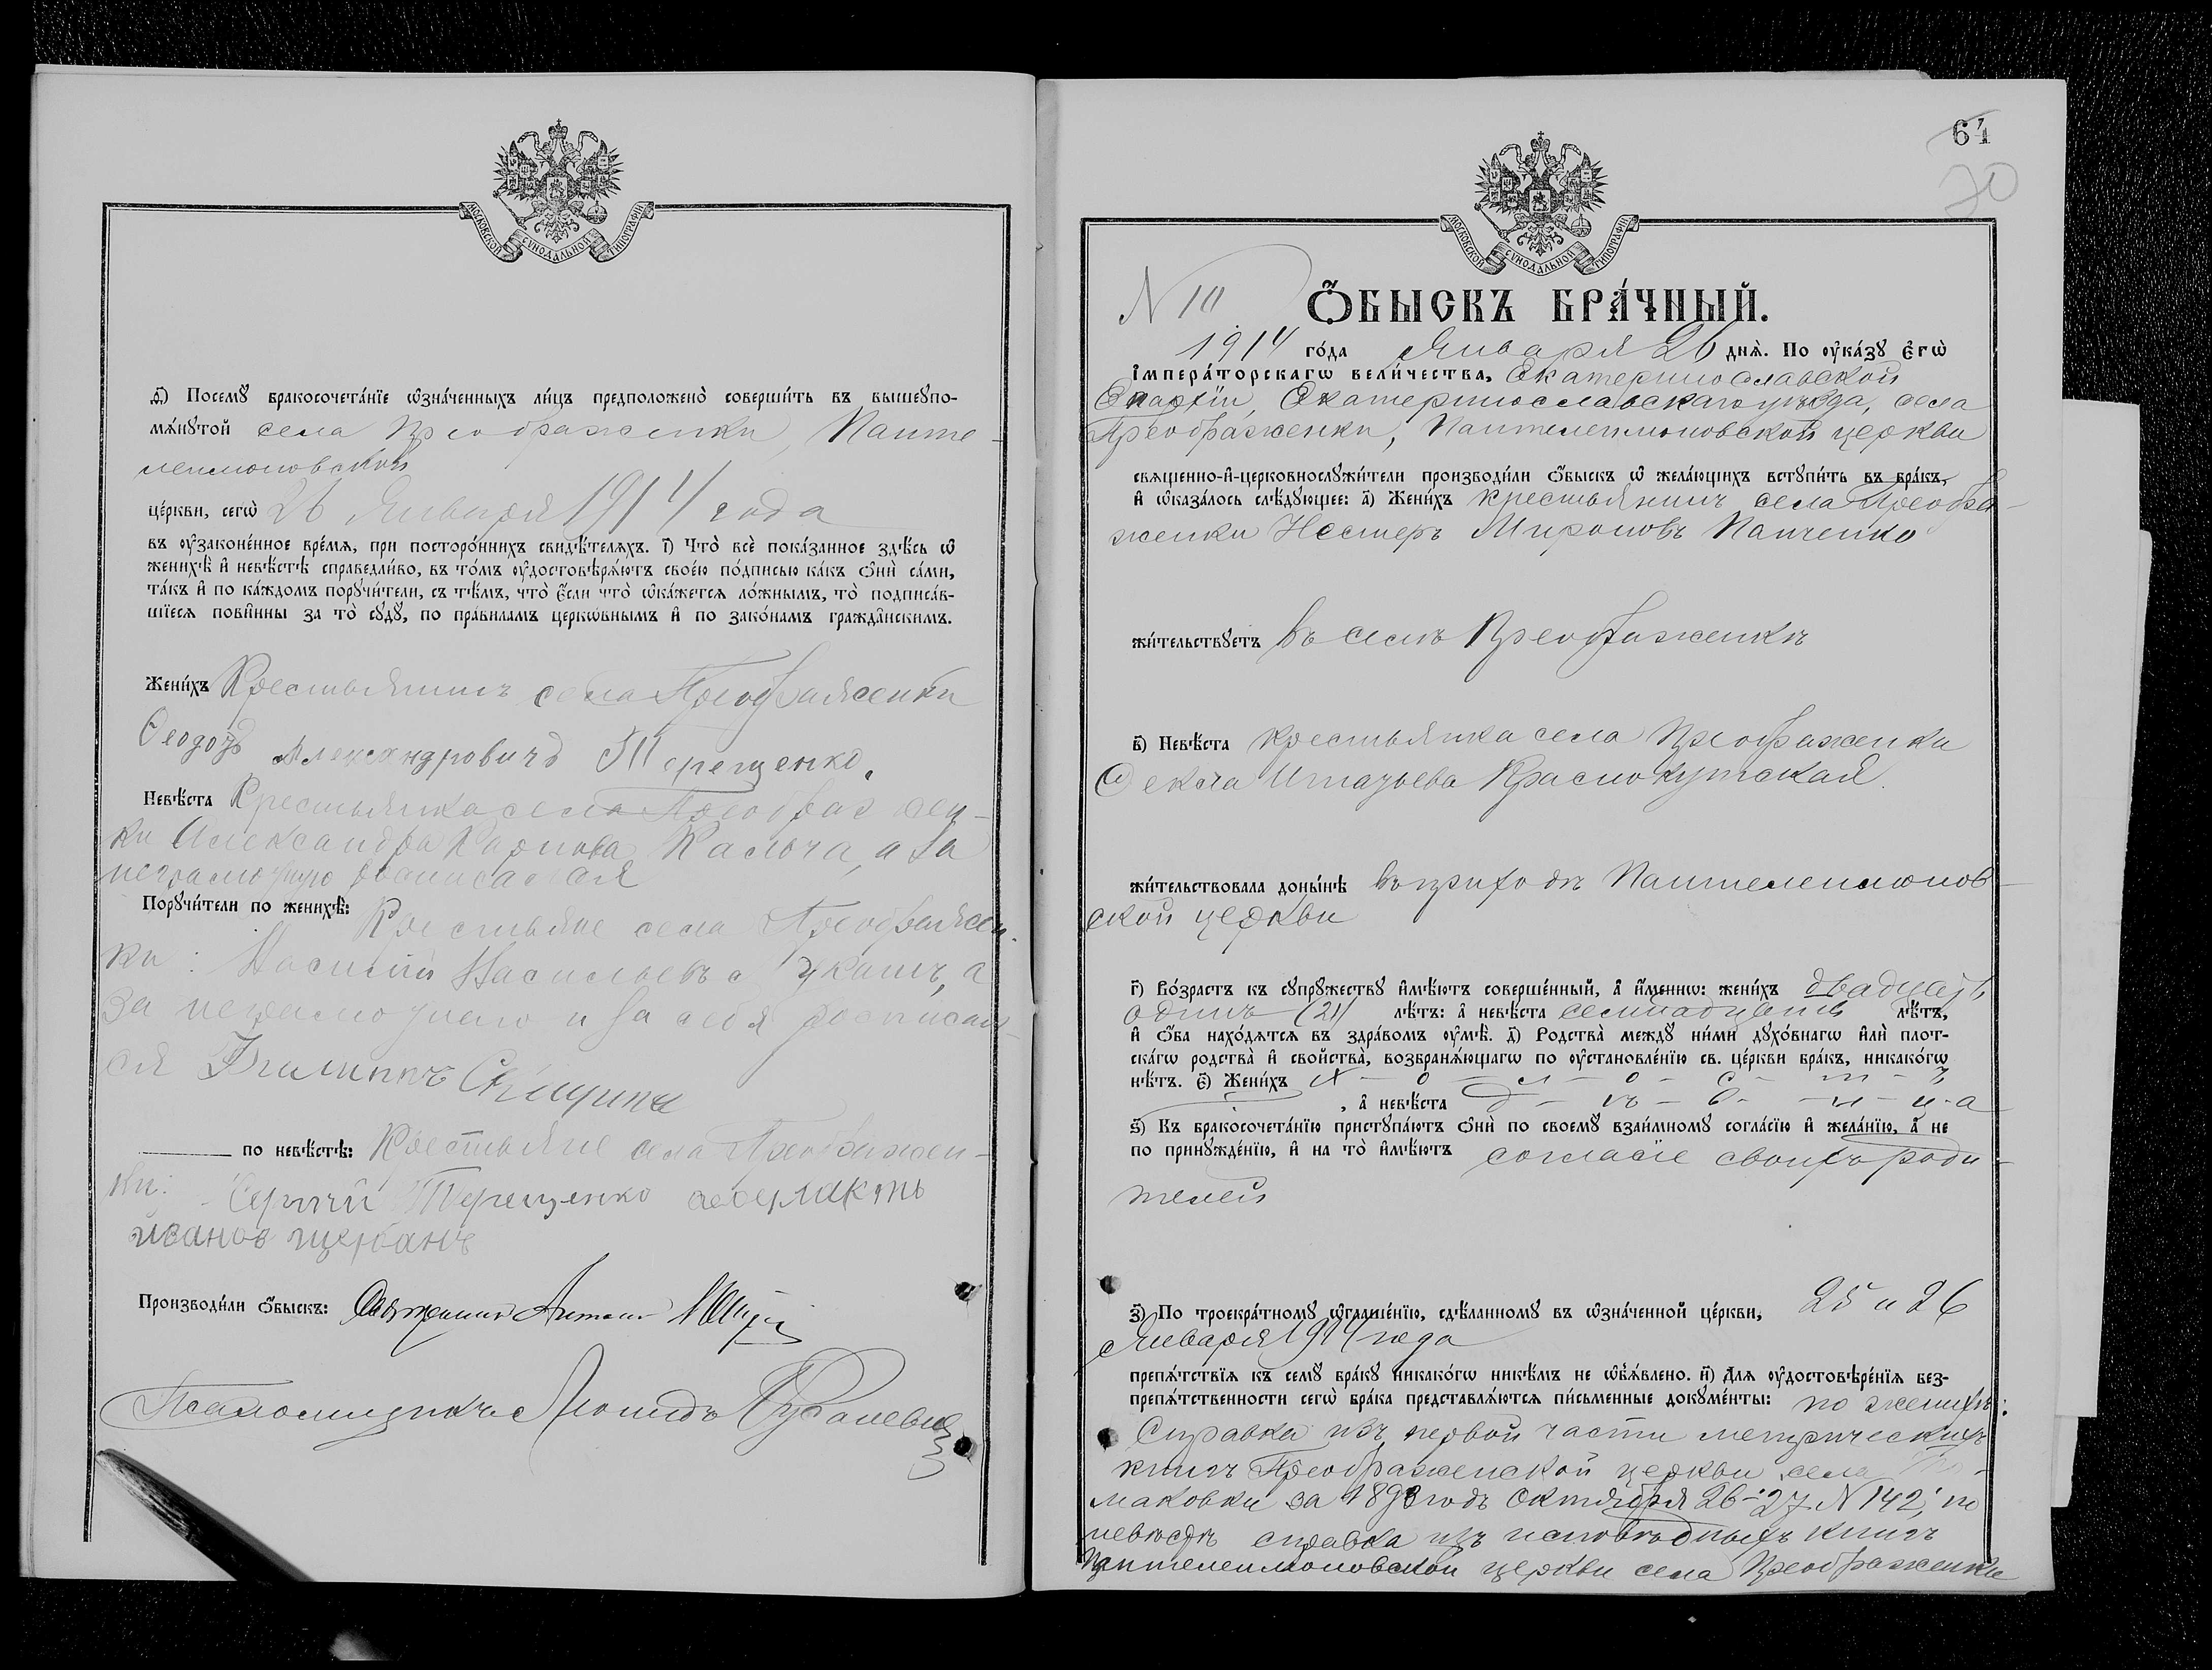 МОСКОВСКОЙ СѴНОДАЛЬНОЙ ТИПОГРАФІИ
д҃) Посемꙋ бракосочета́нїе ѡ҆зна́ченныхъ ли́цъ предположено̀ соверши́ть въ вышеꙋпо-
мѧ́нꙋтой села Преображенки, Панте-
леимоновской
це́ркви, сегѡ̀ 26 Января 1914 года
въ ᲂу҆законе́нное вре́мѧ, при посторо́ннихъ свидѣ́телѧхъ. і҃) Что̀ всѐ пока́занное здѣ́сь ѡ҆
женихѣ̀ и҆ невѣ́стѣ справедли́во, въ то́мъ ᲂу҆достовѣрѧ́ютъ свое́ю по́дписью ка́къ ѻ҆нѝ са́ми,
та́къ и҆ по ка́ждомъ порꙋчи́тели, съ тѣ́мъ, что̀ є҆́сли что̀ ѡ҆ка́жетсѧ ло́жнымъ, то̀ подписа́в-
шїесѧ пови́нны за то̀ сꙋдꙋ̀, по пра́виламъ церко́внымъ и҆ по зако́намъ гражда́нскимъ.
Жени́хъ Крестьянинъ села Преображенки
Ѳеодозъ Александровичъ Терещенко.
Невѣ́ста Крестьянка села Преображен-
ки Александра Карпова Калюча, а за
неграмотную
Порꙋчи́тели по женихѣ̀: Крестьяне села Преображен-
ки: Василій Васильевъ а
за неграмотнаго и за себя росписал-
ся Филиппъ
по невѣ́стѣ: Крестьяне села Преображен-
ки: Сергѣй Терещенко
Иванов щербань
Производи́ли ѻ҆́быскъ: Священникъ Антоній
Псаломщикъ Леонидъ
64
70
МОСКОВСКОЙ СѴНОДАЛЬНОЙ ТИПОГРАФІИ
N 10
Ѻ҆́БЫСКЪ БРА́ЧНЫЙ.
1914 го́да Января 26 днѧ̀. По ᲂу҆ка́зꙋ є҆гѡ̀
і҆мпера́торскагѡ вели́чества, Екатеринославской
Епархіи, Екатеринославскаго уѣзда, села
Преображенки, Пантелеимоновской церкви
свѧще́нно-и҆-церковнослꙋжи́тели производи́ли ѻ҆́быскъ ѡ҆ жела́ющихъ встꙋпи́ть въ бра́къ,
и҆ ѡ҆каза́лось слѣ́дꙋющее: а҃) Жени́хъ крестьянинъ села Преобра-
женки Нестеръ Мироновъ Панченко
жи́тельствꙋетъ въ селѣ Преображенкѣ
в҃) Невѣ́ста крестьянка села Преображенки
Ѳекла Игнатьева Краснокутская.
жи́тельствовала доны́нѣ въ приходѣ Пантелеимонов-
ской церкви
г҃) Во́зрастъ къ сꙋпрꙋ́жествꙋ и҆мѣ́ютъ соверше́нный, а҆ и҆́менно: жени́хъ двадцать
одинъ (21) лѣ́тъ: а҆ невѣ́ста семнадцать лѣ́тъ,
и҆ ѻ҆́ба нахо́дѧтсѧ въ здра́вомъ ᲂу҆мѣ̀. д҃) Родства̀ междꙋ̀ ни́ми дꙋхо́внагѡ и҆лѝ плот-
ска́гѡ родства̀ и҆ свойства̀, возбранѧ́ющагѡ по ᲂу҆становле́нїю св. це́ркви бра́къ, никако́гѡ
нѣ́тъ. є҃) Жени́хъ х - о - л - о - с - т - ъ
, а҆ невѣ́ста д - ѣ - в - и - ц - а
ѕ҃) Къ бракосочета́нїю пристꙋпа́ютъ ѻ҆нѝ по своемꙋ̀ взаи́мномꙋ согла́сїю и҆ жела́нїю, а҆ не
по принꙋжде́нїю, и҆ на то̀ и҆мѣ́ютъ согласіе своихъ роди-
телей
з҃) По троекра́тномꙋ ѡ҆глаше́нїю, сдѣ́ланномꙋ въ ѡ҆зна́ченной це́ркви, 25 и 26
Января 1914 года
препѧ́тствїѧ къ семꙋ̀ бра́кꙋ никако́гѡ никѣ́мъ не ѡ҆б̾ѧ́влено. и҃) Длѧ ᲂу҆достовѣре́нїѧ без-
препѧ́тственности сегѡ̀ бра́ка представлѧ́ютсѧ пи́сьменные докꙋме́нты: по женихѣ:
Справка изъ первой части метрическихъ
книгъ Преображенской церкви села То-
маковки за 1893 годъ Октября 26-27 N 142; по
невѣстѣ справка изъ исповѣдныхъ книгъ
Пантелеимоновской церкви села Преображенки